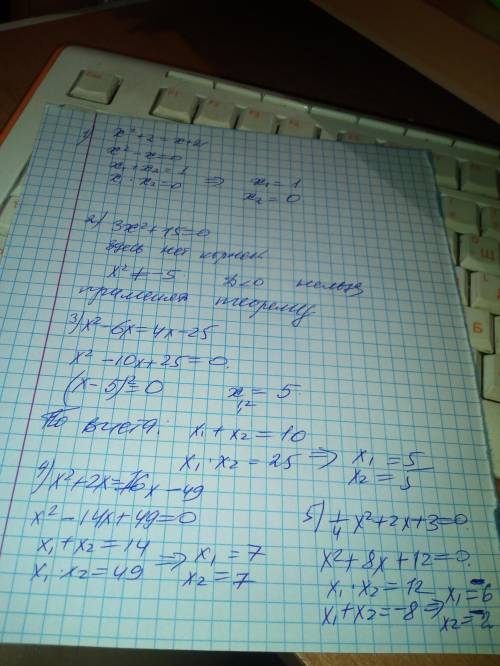 1) x² + 2 = x + 2
x² - x = 0
x₁ + x₂ = 1
x₁ · x₂ = 0 ⇒ x₁ = 1
x₂ = 0
2) 3x² + 15 = 0
здесь нет корней
x² ≠ -5 D < 0 нельзя
применять теорему
3) x² - 6x = 4x - 25
x² - 10x + 25 = 0.
(x - 5)² = 0 x₁,₂ = 5.
По виета: x₁ + x₂ = 10
x₁ · x₂ = 25 ⇒ x₁ = 5
x₂ = 5
4) x² + 2x = 16x - 49
x² - 14x + 49 = 0
x₁ + x₂ = 14
x₁ · x₂ = 49 ⇒ x₁ = 7
x₂ = 7
5) 1/4 x² + 2x + 3 = 0.
x² + 8x + 12 = 0.
x₁ · x₂ = 12
x₁ + x₂ = -8 ⇒ x₁ = -6
x₂ = -2